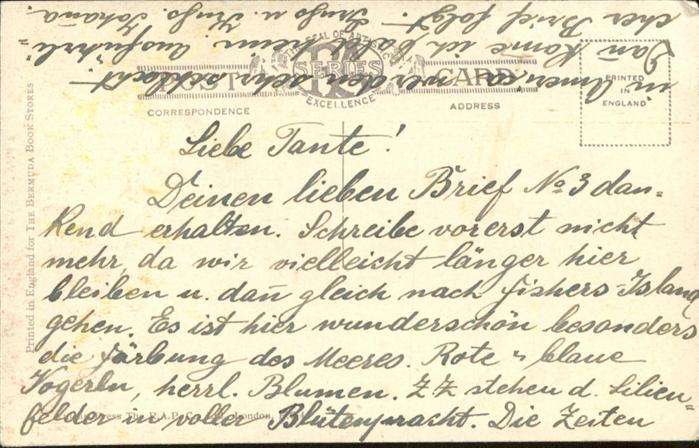 POST CARD
THE SEAL OF ARTISTIC
SERIES
EXCELLENCE
CORRESPONDENCE
ADDRESS
PRINTED
IN
ENGLAND
Printed in England for THE BERMUDA BOOK STORES
Liebe Tante!
Deinen lieben Brief No 3 dan=
kend erhalten. Schreibe vorerst nicht
mehr, da wir vielleicht länger hier
bleiben u. dan̄ gleich nach Fishers-Island
gehen. Es ist hier wunderschön besonders
die Färbung des Meeres. Rote u blaue
Vogerln, herrl. Blumen. Z Z stehen d. Lilien=
felder in voller Blütenpracht. Die Zeiten
in Amerika werden sehr schlecht —
Dan̄ kom̄e ich bald heim. Ausführli=
cher Brief folgt. —
Johana.
The R.A.P. Co. London